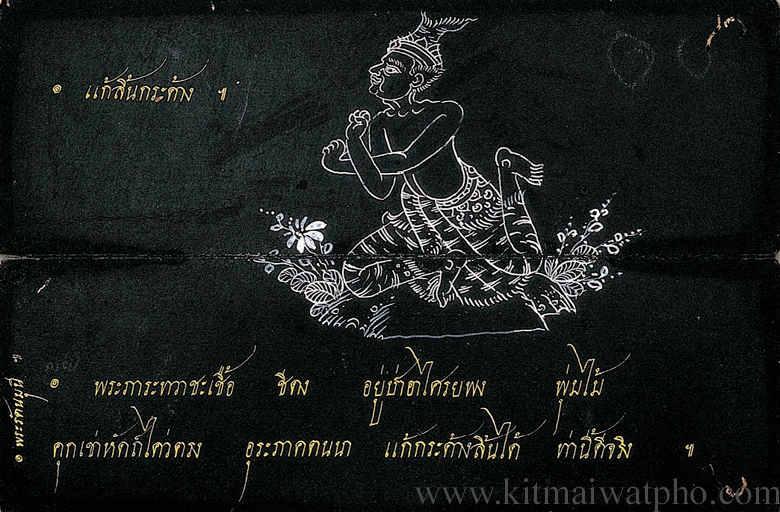 ๏ แก้ลิ้นกระด้าง ๚
๏ พระภาระทวาชะเชื้อ ชีดง
อยู่ป่าอาไศรยพง พุ่มไม้
คุกเข่าหัดถ์ไคว่ตรง อุระภาคตนนา
แก้กระด้างลิ้นได้ ท่านี้ดีจริง ๚
๏ พระรัตนมุนี ๚
www.kitmaiwatpho.com